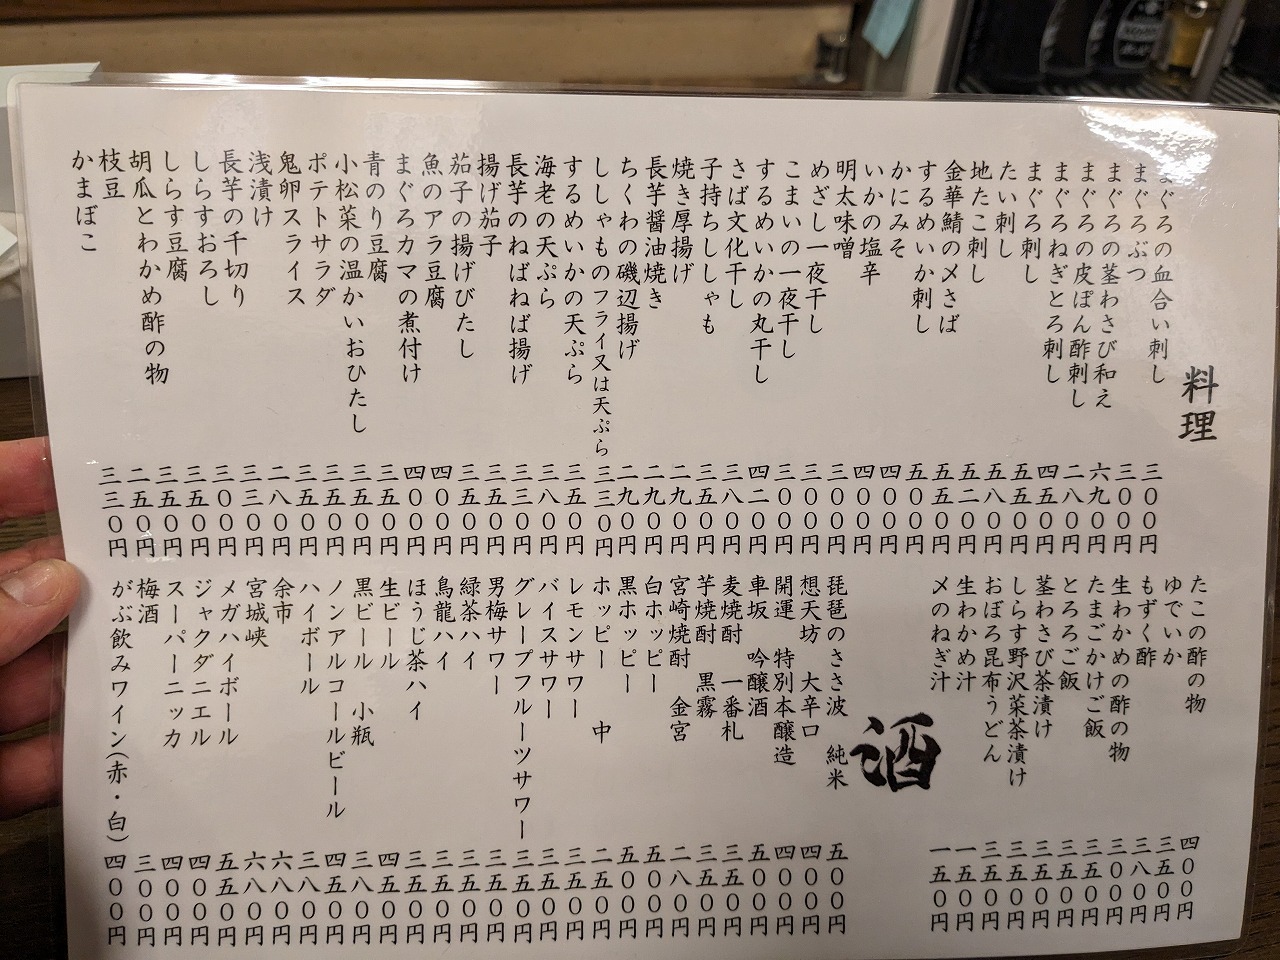 料理
まぐろの血合い刺し 三〇〇円
まぐろぶつ 三〇〇円
まぐろの茎わさび和え 六九〇円
まぐろの皮ぽん酢刺し 二八〇円
まぐろねぎとろ刺し 四五〇円
まぐろ刺し 五五〇円
たい刺し 五八〇円
地たこ刺し 五二〇円
金華鯖の〆さば 五五〇円
するめいか刺し 五〇〇円
かにみそ 四〇〇円
いかの塩辛 四〇〇円
明太味噌 三〇〇円
めざし一夜干し 三〇〇円
こまいの一夜干し 三〇〇円
するめいかの丸干し 四二〇円
さば文化干し 三八〇円
子持ちししゃも 三五〇円
焼き厚揚げ 二九〇円
長芋醤油焼き 二九〇円
ちくわの磯辺揚げ 二九〇円
ししゃものフライ又は天ぷら 三三〇円
するめいかの天ぷら 三五〇円
海老の天ぷら 三八〇円
長芋のねばねば揚げ 三三〇円
揚げ茄子 三五〇円
茄子の揚げびたし 三五〇円
魚のアラ豆腐 四〇〇円
まぐろカマの煮付け 四〇〇円
青のり豆腐 三五〇円
小松菜の温かいおひたし 三五〇円
ポテトサラダ 三五〇円
鬼卵スライス 三五〇円
浅漬け 二八〇円
長芋の千切り 三三〇円
しらすおろし 三〇〇円
しらす豆腐 三五〇円
胡瓜とわかめ酢の物 三五〇円
枝豆 二五〇円
かまぼこ 三三〇円
たこの酢の物 四〇〇円
ゆでいか 三五〇円
もずく酢 三八〇円
生わかめの酢の物 三〇〇円
たまごかけご飯 三五〇円
とろろご飯 三五〇円
茎わさび茶漬け 三五〇円
しらす野沢菜茶漬け 三五〇円
おぼろ昆布うどん 三五〇円
生わかめ汁 一五〇円
〆のねぎ汁 一五〇円
酒
琵琶のささ波 純米 五〇〇円
想天坊 大辛口 四〇〇円
開運 特別本醸造 四〇〇円
車坂 吟醸酒 五〇〇円
麦焼酎 一番札 三五〇円
芋焼酎 黒霧 三五〇円
宮崎焼酎 金宮 二八〇円
白ホッピー 五〇〇円
黒ホッピー 五〇〇円
ホッピー 中 二五〇円
レモンサワー 三五〇円
バイスサワー 三五〇円
グレープフルーツサワー 三五〇円
男梅サワー 三五〇円
緑茶ハイ 三五〇円
烏龍ハイ 三五〇円
ほうじ茶ハイ 三五〇円
生ビール 四五〇円
黒ビール 小瓶 三八〇円
ノンアルコールビール 四五〇円
ハイボール 三八〇円
余市 六八〇円
宮城峡 六八〇円
メガハイボール 五五〇円
ジャクダニエル 四〇〇円
スーパーニッカ 四〇〇円
梅酒 三〇〇円
がぶ飲みワイン(赤・白) 四〇〇円